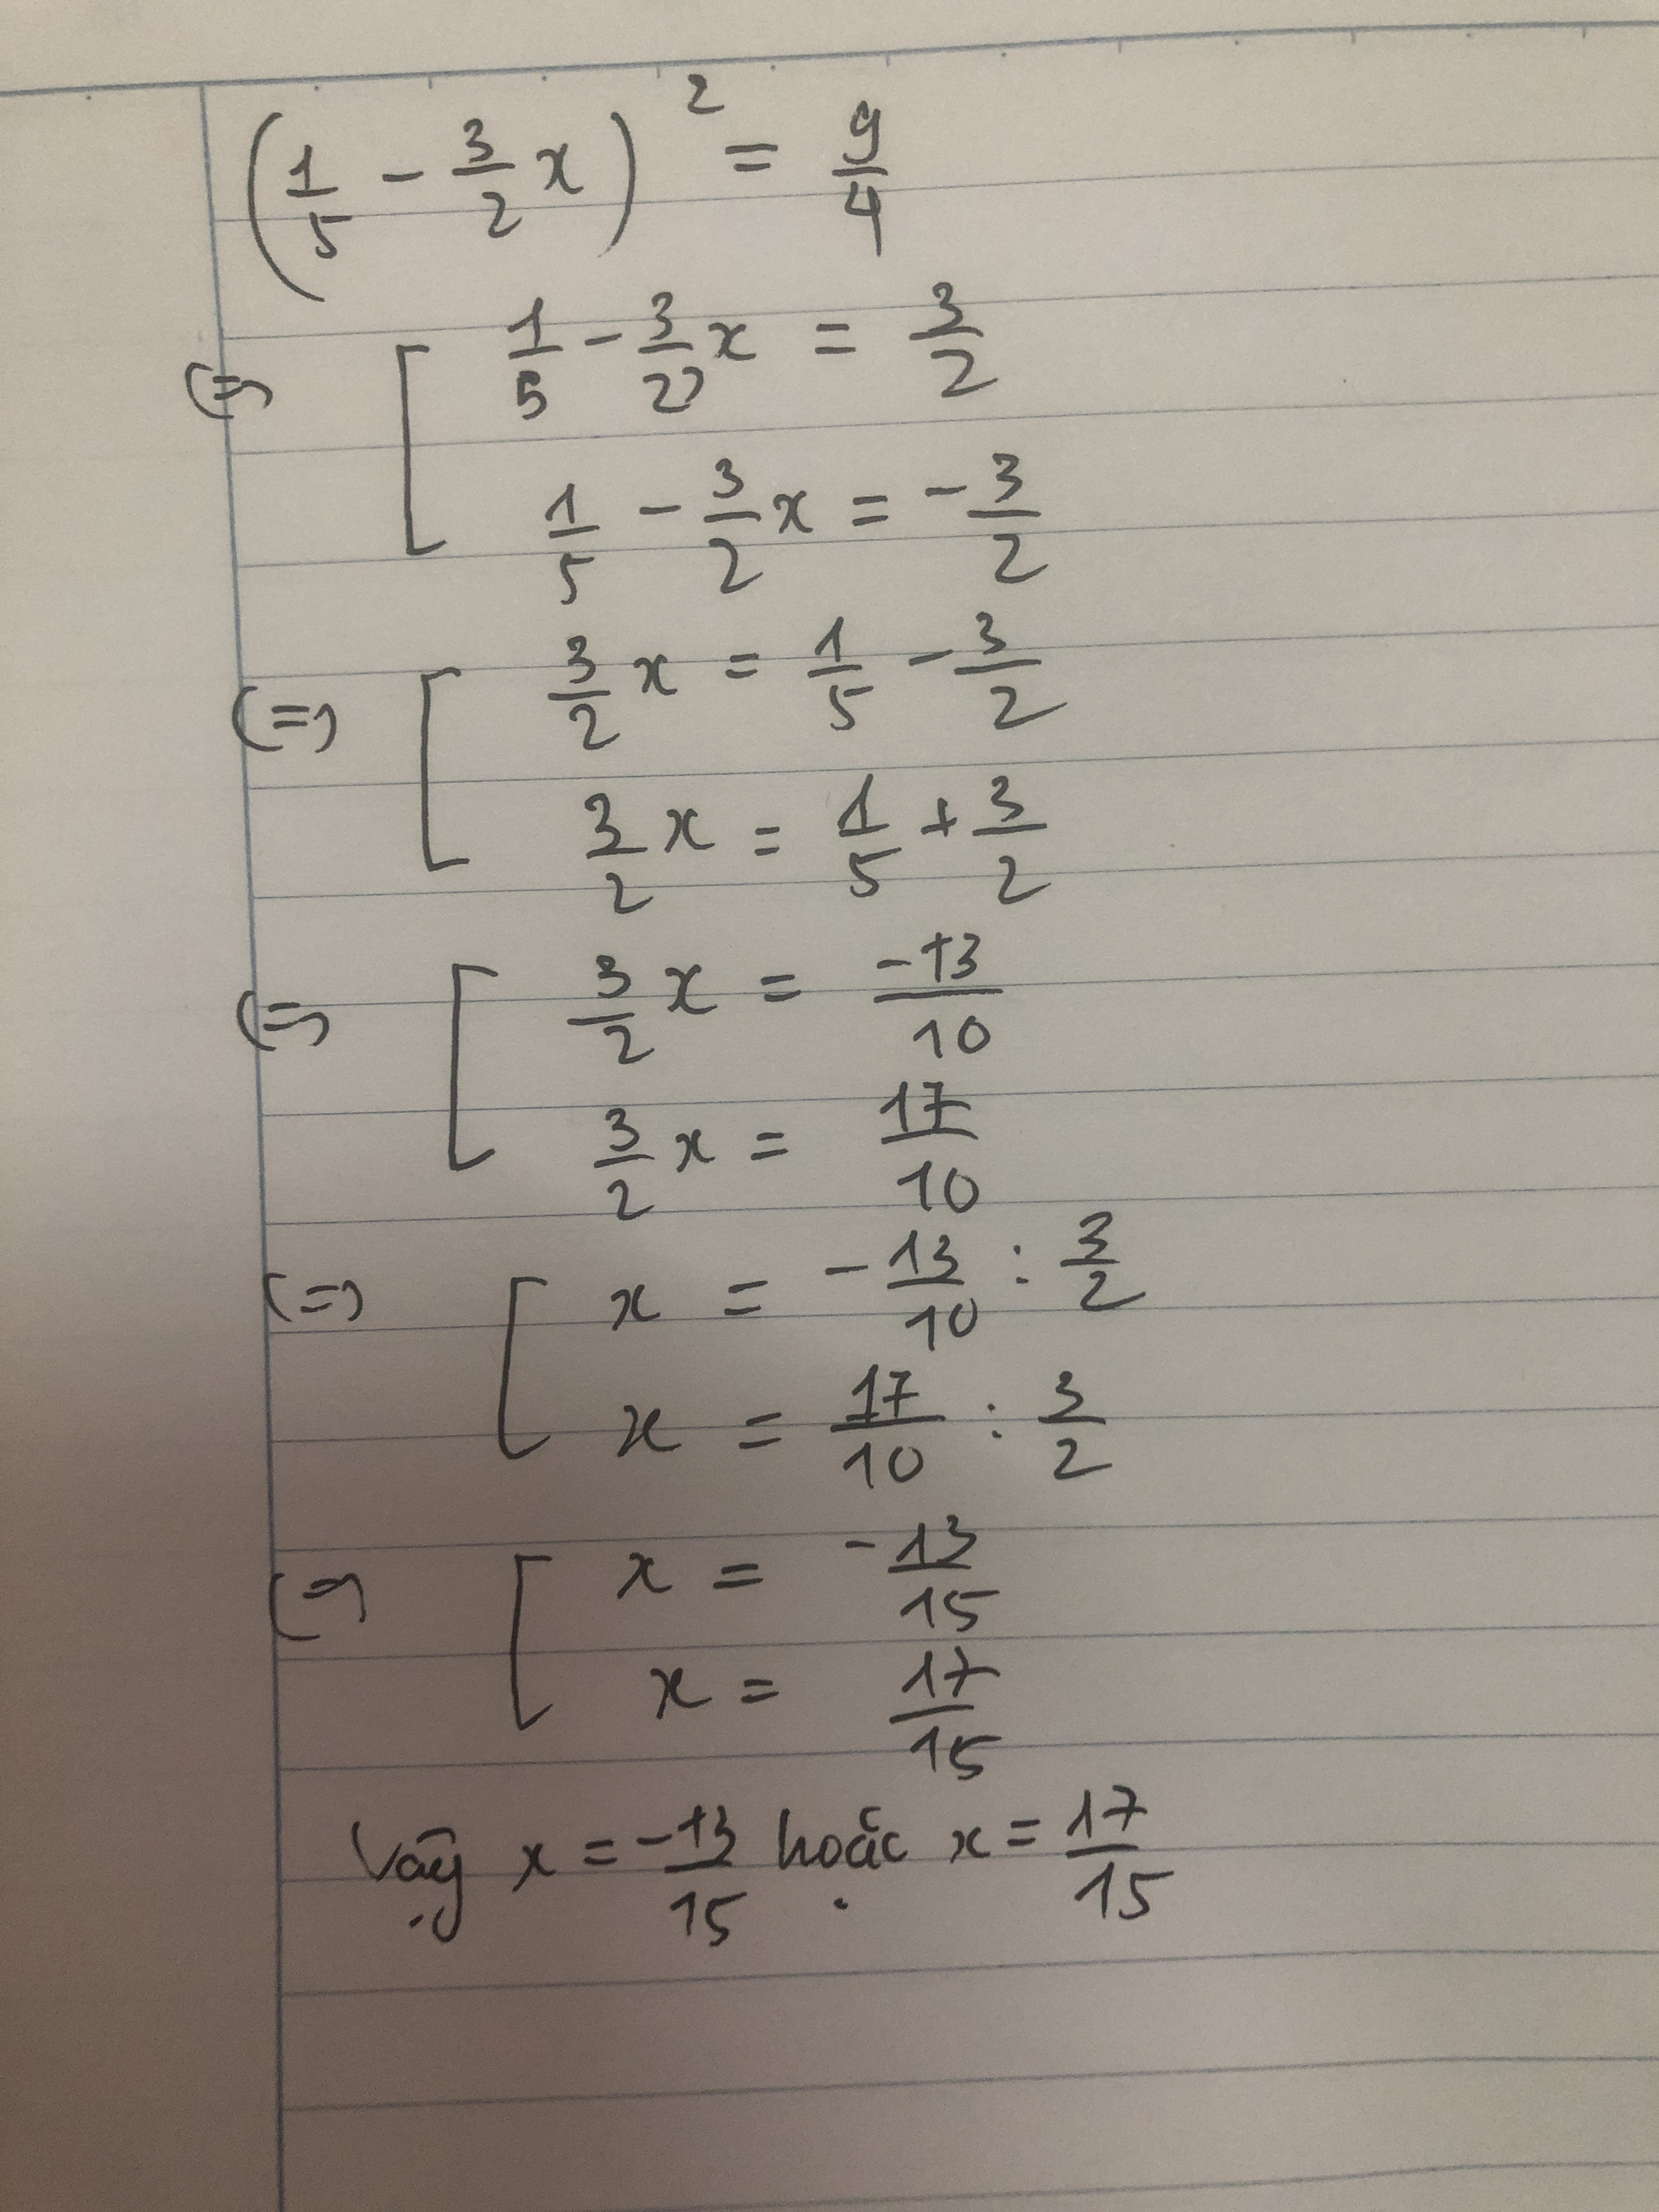 (1/5 - 3/2 x)² = 9/4
(=) [ 1/5 - 3/2 x = 3/2
1/5 - 3/2 x = - 3/2
(=) [ 3/2 x = 1/5 - 3/2
3/2 x = 1/5 + 3/2
(=) [ 3/2 x = -13/10
3/2 x = 17/10
(=) [ x = - 13/10 : 3/2
x = 17/10 : 3/2
(=) [ x = - 13/15
x = 17/15
Vậy x = - 13/15 hoặc x = 17/15